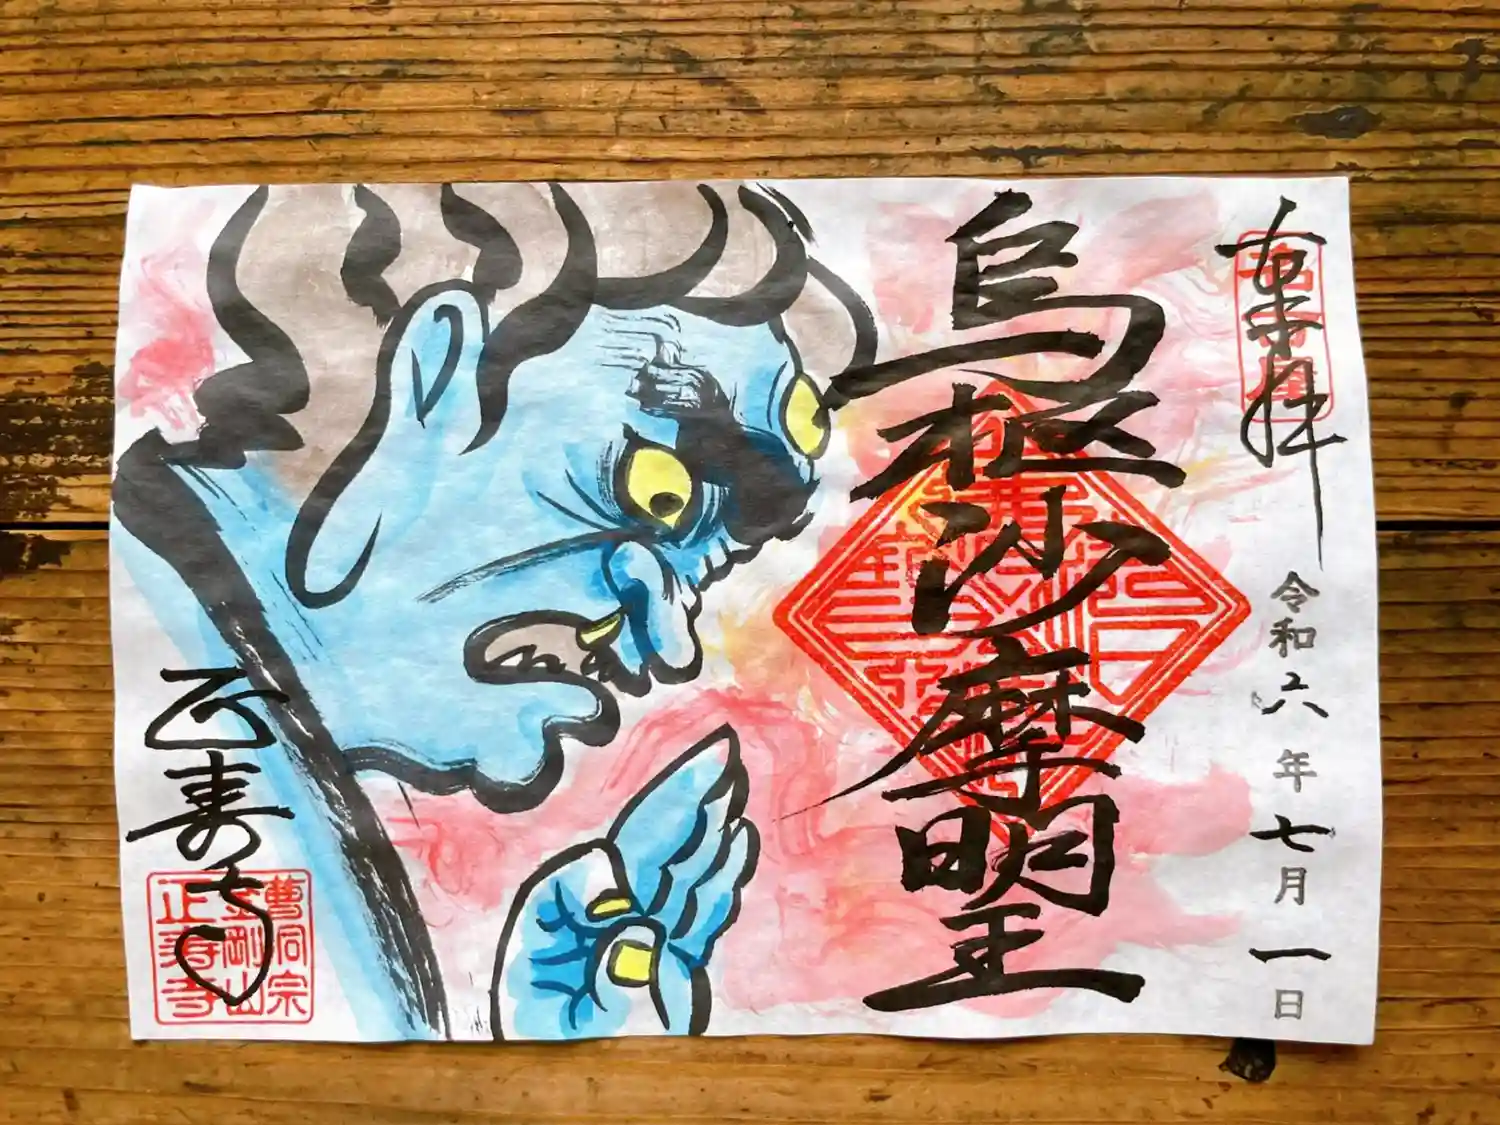 奉拝
令和六年七月一日
烏枢沙摩明王
正寿寺
曹洞宗
金剛山
正寿寺